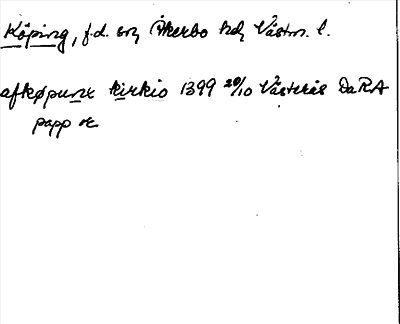 Köping, f.d. sn, Åkerbo hd, Västm. l.
afkøpunx kirkio 1399 20/10 Västerås DaRA
papp or